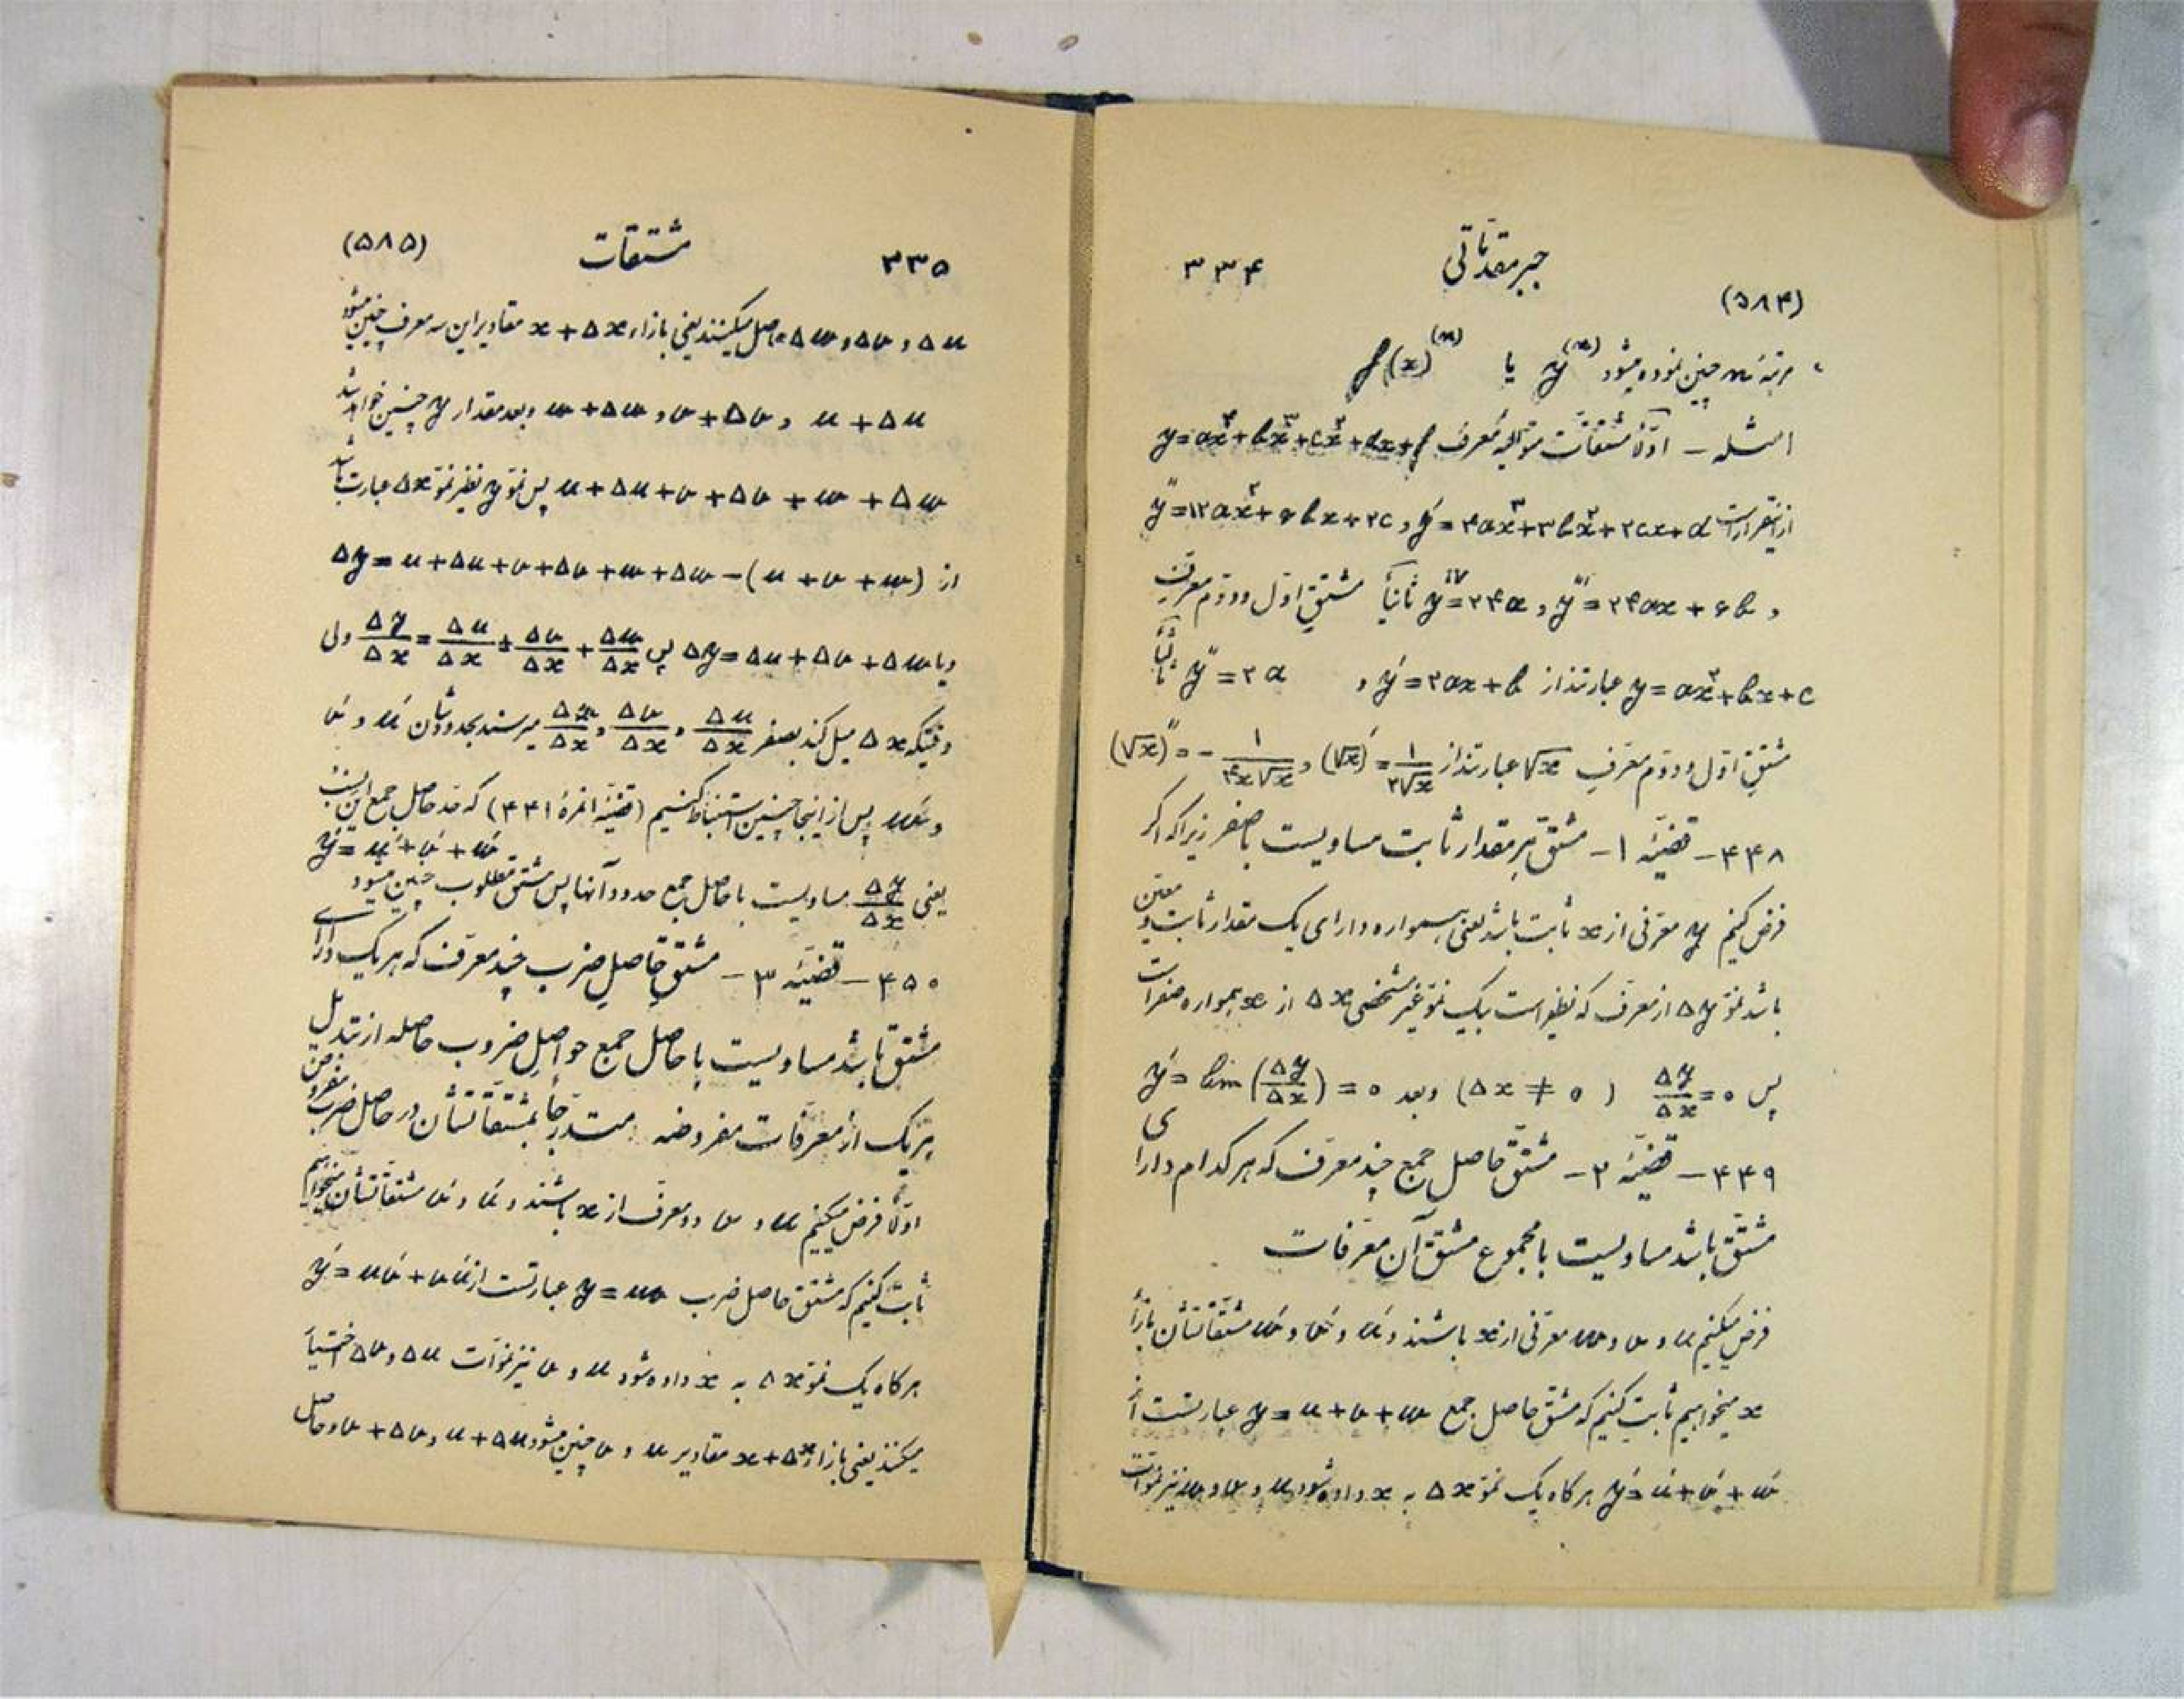 ۳۳۴ جبر مقدّماتی (۵۸۴)
مرتبهٔ n چنین نموده میشود y⁽ⁿ⁾ یا f(x)⁽ⁿ⁾
امثله – اوّلاً مشتقّات متوالیهٔ معرف y=ax⁴+bx³+cx²+dx+f
ازینقرار است y′=۴ax³+۳bx²+۲cx+d و y″=۱۲ax²+۶bx+۲c
و y‴=۲۴ax+۶b و yⁱᵛ=۲۴a ثانیاً مشتق اوّل و دوّم معرف
y=ax²+bx+c عبارتند از y′=۲ax+b و y″=۲a ثالثاً
مشتق اوّل و دوّم معرف √x عبارتند از (√x)′=۱/۲√x و (√x)″=-۱/۴x√x
۴۴۸ – قضیّهٔ ۱ – مشتقّ هر مقدار ثابت مساویست با صفر زیرا که اگر
فرض کنیم y معرفی از x ثابت باشد یعنی همواره دارای یک مقدار ثابت و معیّن
باشد نموّ Δy از معرف که نظیر است بیک نموّ غیر مشخصی Δx از x همواره صفر است
پس Δy/Δx=۰ (Δx≠۰) وبعد y′=lim(Δy/Δx)=۰
۴۴۹ – قضیّهٔ ۲ – مشتقّ حاصل جمع چند معرف که هر کدام دارای
مشتقّ باشد مساویست با مجموع مشتقّ آن معرفات
فرض میکنیم u و v و w معرفی از x باشند و u′ و v′ و w′ مشتقّاتشان بازاءِ
x میخواهیم ثابت کنیم که مشتق حاصل جمع y=u+v+w عبارتست از
y′=u′+v′+w′ هر گاه یک نموّ Δx به x داده شود u و v و w نیز نموّات
۳۳۵ مشتقات (۵۸۵)
Δu و Δv و Δw حاصل میکنند یعنی بازاء x+Δx مقادیر این سه معرف چنین میشود
u+Δu و v+Δv و w+Δw وبعد مقدار y چنین خواهد شد
u+Δu+v+Δv+w+Δw پس نموّ y نظیر نموّ Δx عبارت باشد
از Δy=u+Δu+v+Δv+w+Δw-(u+v+w)
ویا Δy=Δu+Δv+Δw پس Δy/Δx=Δu/Δx+Δv/Δx+Δw/Δx ولی
وقتیکه Δx میل کند بصفر Δu/Δx و Δv/Δx و Δw/Δx میرسند بحدودشان u′ و v′
و w′ پس از اینجا چنین استنباط کنیم (قضیّهٔ نمرهٔ ۴۴۱) که حدّ حاصل جمع این نسب
یعنی Δy/Δx مساویست با حاصل جمع حدود آنها پس مشتق مطلوب چنین میشود y′=u′+v′+w′
۴۵۰ – قضیّهٔ ۳ – مشتقّ حاصل ضرب چند معرف که هر یک دارای
مشتقّ باشد مساویست با حاصل جمع حواصل ضروب حاصله از تبدیل
هر یک از معرفات مفروضه متدرجاً بمشتقّاتشان در حاصل ضرب مفروض
اوّلاً فرض میکنیم u و v دو معرف از x باشند و u′ و v′ مشتقّاتشان میخواهیم
ثابت کنیم که مشتق حاصل ضرب y=uv عبارتست از y′=uv′+vu′
هر گاه یک نموّ Δx به x داده شود u و v نیز نموّات Δu و Δv اختیار
میکنند یعنی بازاءِ x+Δx مقادیر u و v چنین میشود u+Δu و v+Δv و حاصل